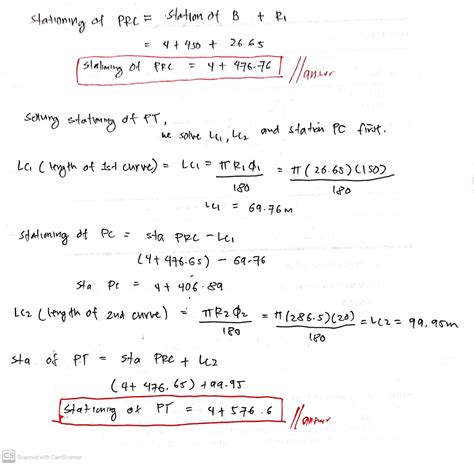 Stationing of PRC = Station of B + R1
= 4+450 + 26.65
Stationing of PRC = 4+476.76 //answer
Solving stationing of PT,
we solve LC1, LC2 and station PC first.
LC1 (length of 1st curve) = LC1 = πR1Φ1/180 = π(26.65)(150)/180
LC1 = 69.76m
Stationing of PC = sta PRC - LC1
(4+476.65) - 69.76
Sta PC = 4+406.89
LC2 (length of 2nd curve) = πR2Φ2/180 = π(286.5)(20)/180 = LC2 = 99.95m
Sta of PT = Sta PRC + LC2
(4+476.65)+99.95
Stationing of PT = 4+576.6 //answer
CS Scanned with CamScanner